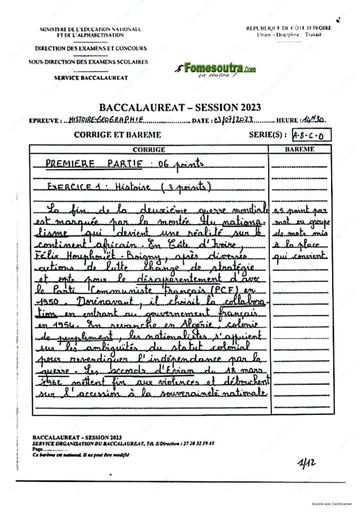 MINISTERE DE L'EDUCATION NATIONALE
ET DE L'ALPHABETISATION
DIRECTION DES EXAMENS ET CONCOURS
SOUS-DIRECTION DES EXAMENS SCOLAIRES
SERVICE BACCALAUREAT
REPUBLIQUE DE CÔTE D'IVOIRE
Union - Discipline - Travail
Fomesoutra.com
ça soutra !
BACCALAUREAT – SESSION 2023
EPREUVE : HISTOIRE-GEOGRAPHIE DATE : 03/07/2023 HEURE : 14H30
CORRIGE ET BAREME SERIE(S) : A-B-C-D
CORRIGE BAREME
PREMIERE PARTIE : 06 points
EXERCICE 1 : Histoire (3 points)
La fin de la deuxième guerre mondiale
est marquée par la montée du nationa-
lisme qui devient une réalité sur le
continent africain. En Côte d'Ivoire,
Félix Houphouët-Boigny, après diverses
actions de lutte change de stratégie
et opte pour le désapparentement d'avec
le Parti Communiste Français (PCF) en
1950. Dorénavant, il choisit la collabora-
tion en entrant au gouvernement français
en 1956. En revanche en Algérie, colonie
de peuplement, les nationalistes s'appuient
sur les ambiguïtés du statut colonial
pour revendiquer l'indépendance par la
guerre. Les accords d'Evian du 18 mars
1962 mettent fin aux violences et débouchent
sur l'accession à la souveraineté nationale
0,5 point par
mot ou groupe
de mots mis
à la place
qui convient.
BACCALAUREAT – SESSION 2023
SERVICE ORGANISATION DU BACCALAUREAT, Tél. S/Direction : 27 20 32 19 45
Page
Ce barème est national. Il ne peut être modifié
1/12
Scanné avec CamScanner